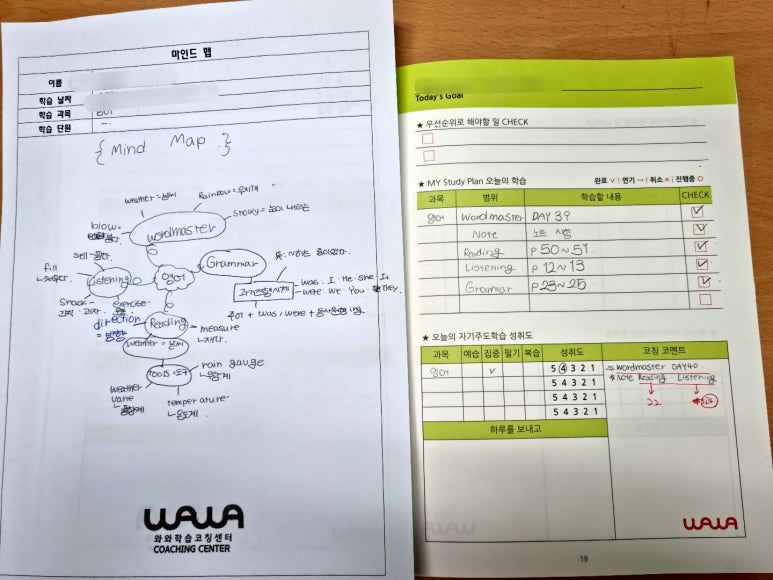 마인드 맵
이름
학습 날짜
학습 과목
학습 단원
{ Mind Map }
weather = 날씨
Rainbow = 무지개
snowy = 눈이 내리는
blow =
wordmaster
sell = 팔다.
Listening
fill
채우다.
snack
간식·과자
exercise
운동
영어
Grammar
뜻: ~하는 중이었다.
과거진행시제
was: I·He·She·It
were: We·You·They
주어 + was/were + 동사원형 ing
direction
= 방향
Reading
measure
재다.
weather = 날씨
Tools = 도구
rain gauge
우량계
weather
vane
풍향계
temperature
온도계
WAWA
와와학습코칭센터
COACHING CENTER
Today's Goal
★ 우선순위로 해야할 일 CHECK
★ MY Study Plan 오늘의 학습 완료 ∨ | 연기 → | 취소 × | 진행중 ○
과목 범위 학습할 내용 CHECK
영어 Wordmaster DAY 39
Note 노트 시험
Reading p 50~51
Listening p 12~13
Grammar p 23~25
★ 오늘의 자기주도학습 성취도
과목 예습 집중 필기 복습 성취도 코칭 코멘트
영어 ∨ 5 4 3 2 1 * Wordmaster DAY40.
5 4 3 2 1 * Note Reading Listening
5 4 3 2 1 22
5 4 3 2 1
하루를 보내고
WAWA
19